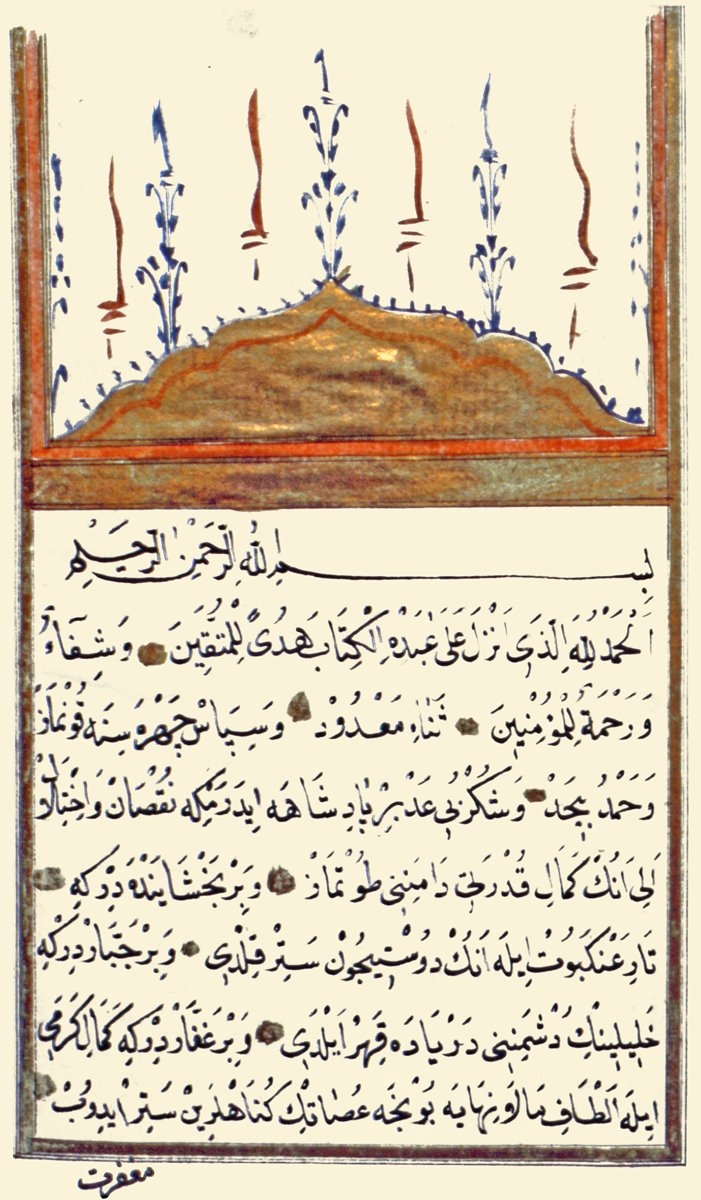 بسم الله الرحمن الرحيم
اَلْحَمْدُ لِلّٰهِ الَّذِى اَنْزَلَ عَلَى عَبْدِهِ الْكِتَابَ هُدًى لِلْمُتَّقِينَ وَشِفَاءٌ
وَرَحْمَةٌ لِلْمُؤْمِنِينَ ثَنَاءِ مَعْدُودْ وَسِپَاسْ چِهْرَهْ سِنَه قُونْمَازْ
وَحَمْدُ بِيحَدْ وَشُكْرُ بِى عَدْ بِرْ پَادِشَاهَه ايدَرَمْكِه نُقْصَانْ وَاخْتِلَالْ
اَلِى اَنُكْ كَمَالِ قُدْرَتِى دَامِنِنِى طُوتْمَازْ وَبِرْ بَخْشَايَنْدَه دِرْكِه
تَارِ عَنْكَبُوتْ اِيلَه اَنُكْ دُوسْتِيچُونْ سَتِرْ قِلْدِى وَبِرْ جَبَّارْدِرْكِه
خَلِيلِينِكْ دُشْمِنِنِى دَرْيَادَه قَهِرْ اَيلَدِى وَبِرْ غَفَّارْدِرْكِه كَمَالِ كَرَمِى
اِيلَه اَلْطَافِ مَا لَا نِهَايَه بُونْجَه عُصَاتِكْ كُنَاهْلَرِينْ سَتِرْ ايدُوبْ
مغفرت